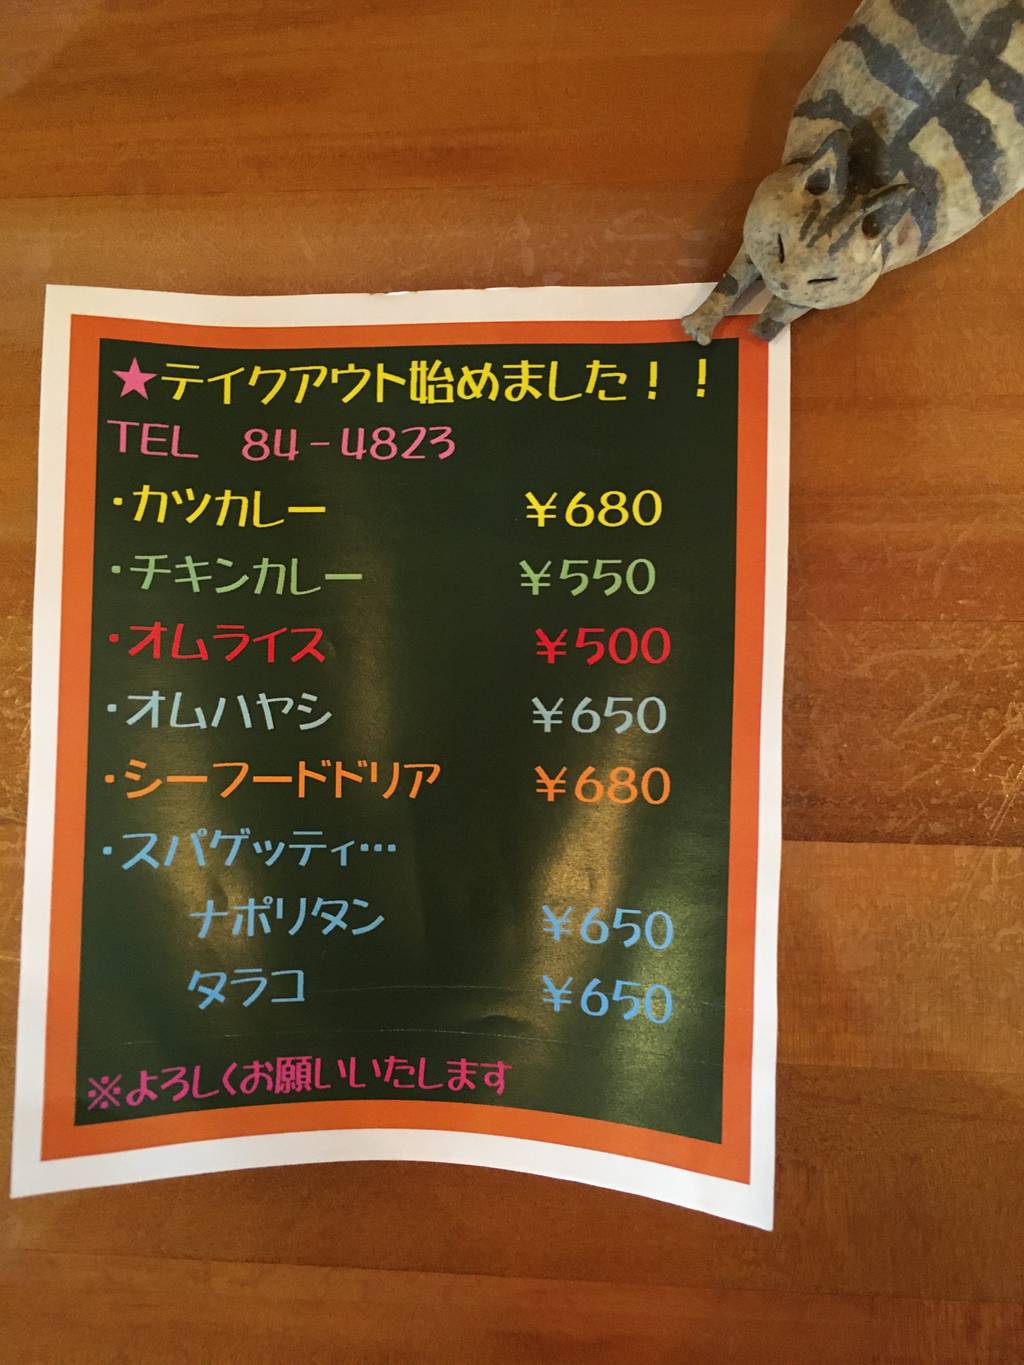 ★テイクアウト始めました！！
TEL 84-4823
・カツカレー ￥680
・チキンカレー ￥550
・オムライス ￥500
・オムハヤシ ￥650
・シーフードドリア ￥680
・スパゲッティ…
ナポリタン ￥650
タラコ ￥650
※よろしくお願いいたします